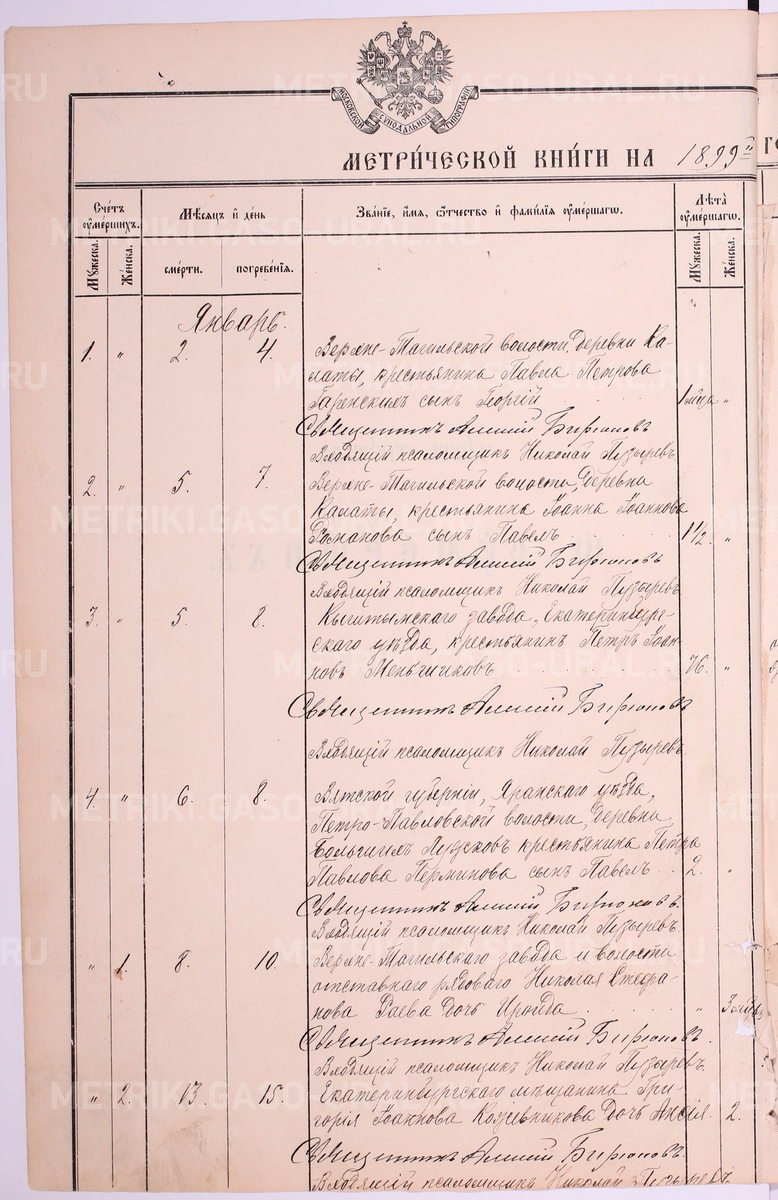 МОСКОВСКОЙ СѴНОДАЛЬНОЙ ТИПОГРАФІИ
МЕТРИ́ЧЕСКОЙ КНИ́ГИ НА 1899
Сче́тъ ᲂу҆ме́ршихъ.
Мѣ́сяцъ и҆ де́нь
Зва́нїе, и҆́мя, ѻ҆́тчество и҆ фами́лїя ᲂу҆ме́ршагѡ.
Лѣ́та ᲂу҆ме́ршагѡ.
Мꙋ́жеска. Же́нска. сме́рти. погребе́нїя. Мꙋ́жеска. Же́нска.
Январь.
1. " 2. 4. Верхне-Тагильской волости, деревни Ка-
латы, крестьянина Павла Петрова
Гаренскихъ сынъ Георгій 1 мѣсяца "
Священникъ Алексій Бирюковъ
Владящій псаломщикъ Николай Пузыревъ.
2. " 5. 7. Верхне-Тагильской волости, деревни
Калаты, крестьянина Іоанна Іоаннова
Романова сынъ Павелъ 1½. "
Священникъ Алексій Бирюковъ
Владящій псаломщикъ Николай Пузыревъ
3. " 5. 8. Кыштымскаго завода, Екатеринбург-
скаго уѣзда, крестьянинъ Петръ Іоан-
новъ Меньшиковъ 76. "
Священникъ Алексій Бирюковъ
Владящій псаломщикъ Николай Пузыревъ
4. " 6. 8. Вятской губерніи, Яранскаго уѣзда,
Петро-Павловской волости, деревни
Большихъ крестьянина Петра
Павлова Перминова сынъ Павелъ 2. "
Священникъ Алексій Бирюковъ.
Владящій псаломщикъ Николай Пузыревъ
" 1. 8. 10. Верхне-Тагильскаго завода и волости
отставнаго рядоваго Николая Стефа-
нова Раева дочь Ироида " 3
Священникъ Алексій Бирюковъ.
Владящій псаломщикъ Николай Пузыревъ.
" 2. 13. 15. Екатеринбургскаго мѣщанина Гри-
горія Іоаннова Кожевникова дочь 2.
Священникъ Алексій Бирюковъ.
Владящій псаломщикъ Николай Пузыревъ
METRIKI.GASO-URAL.RU